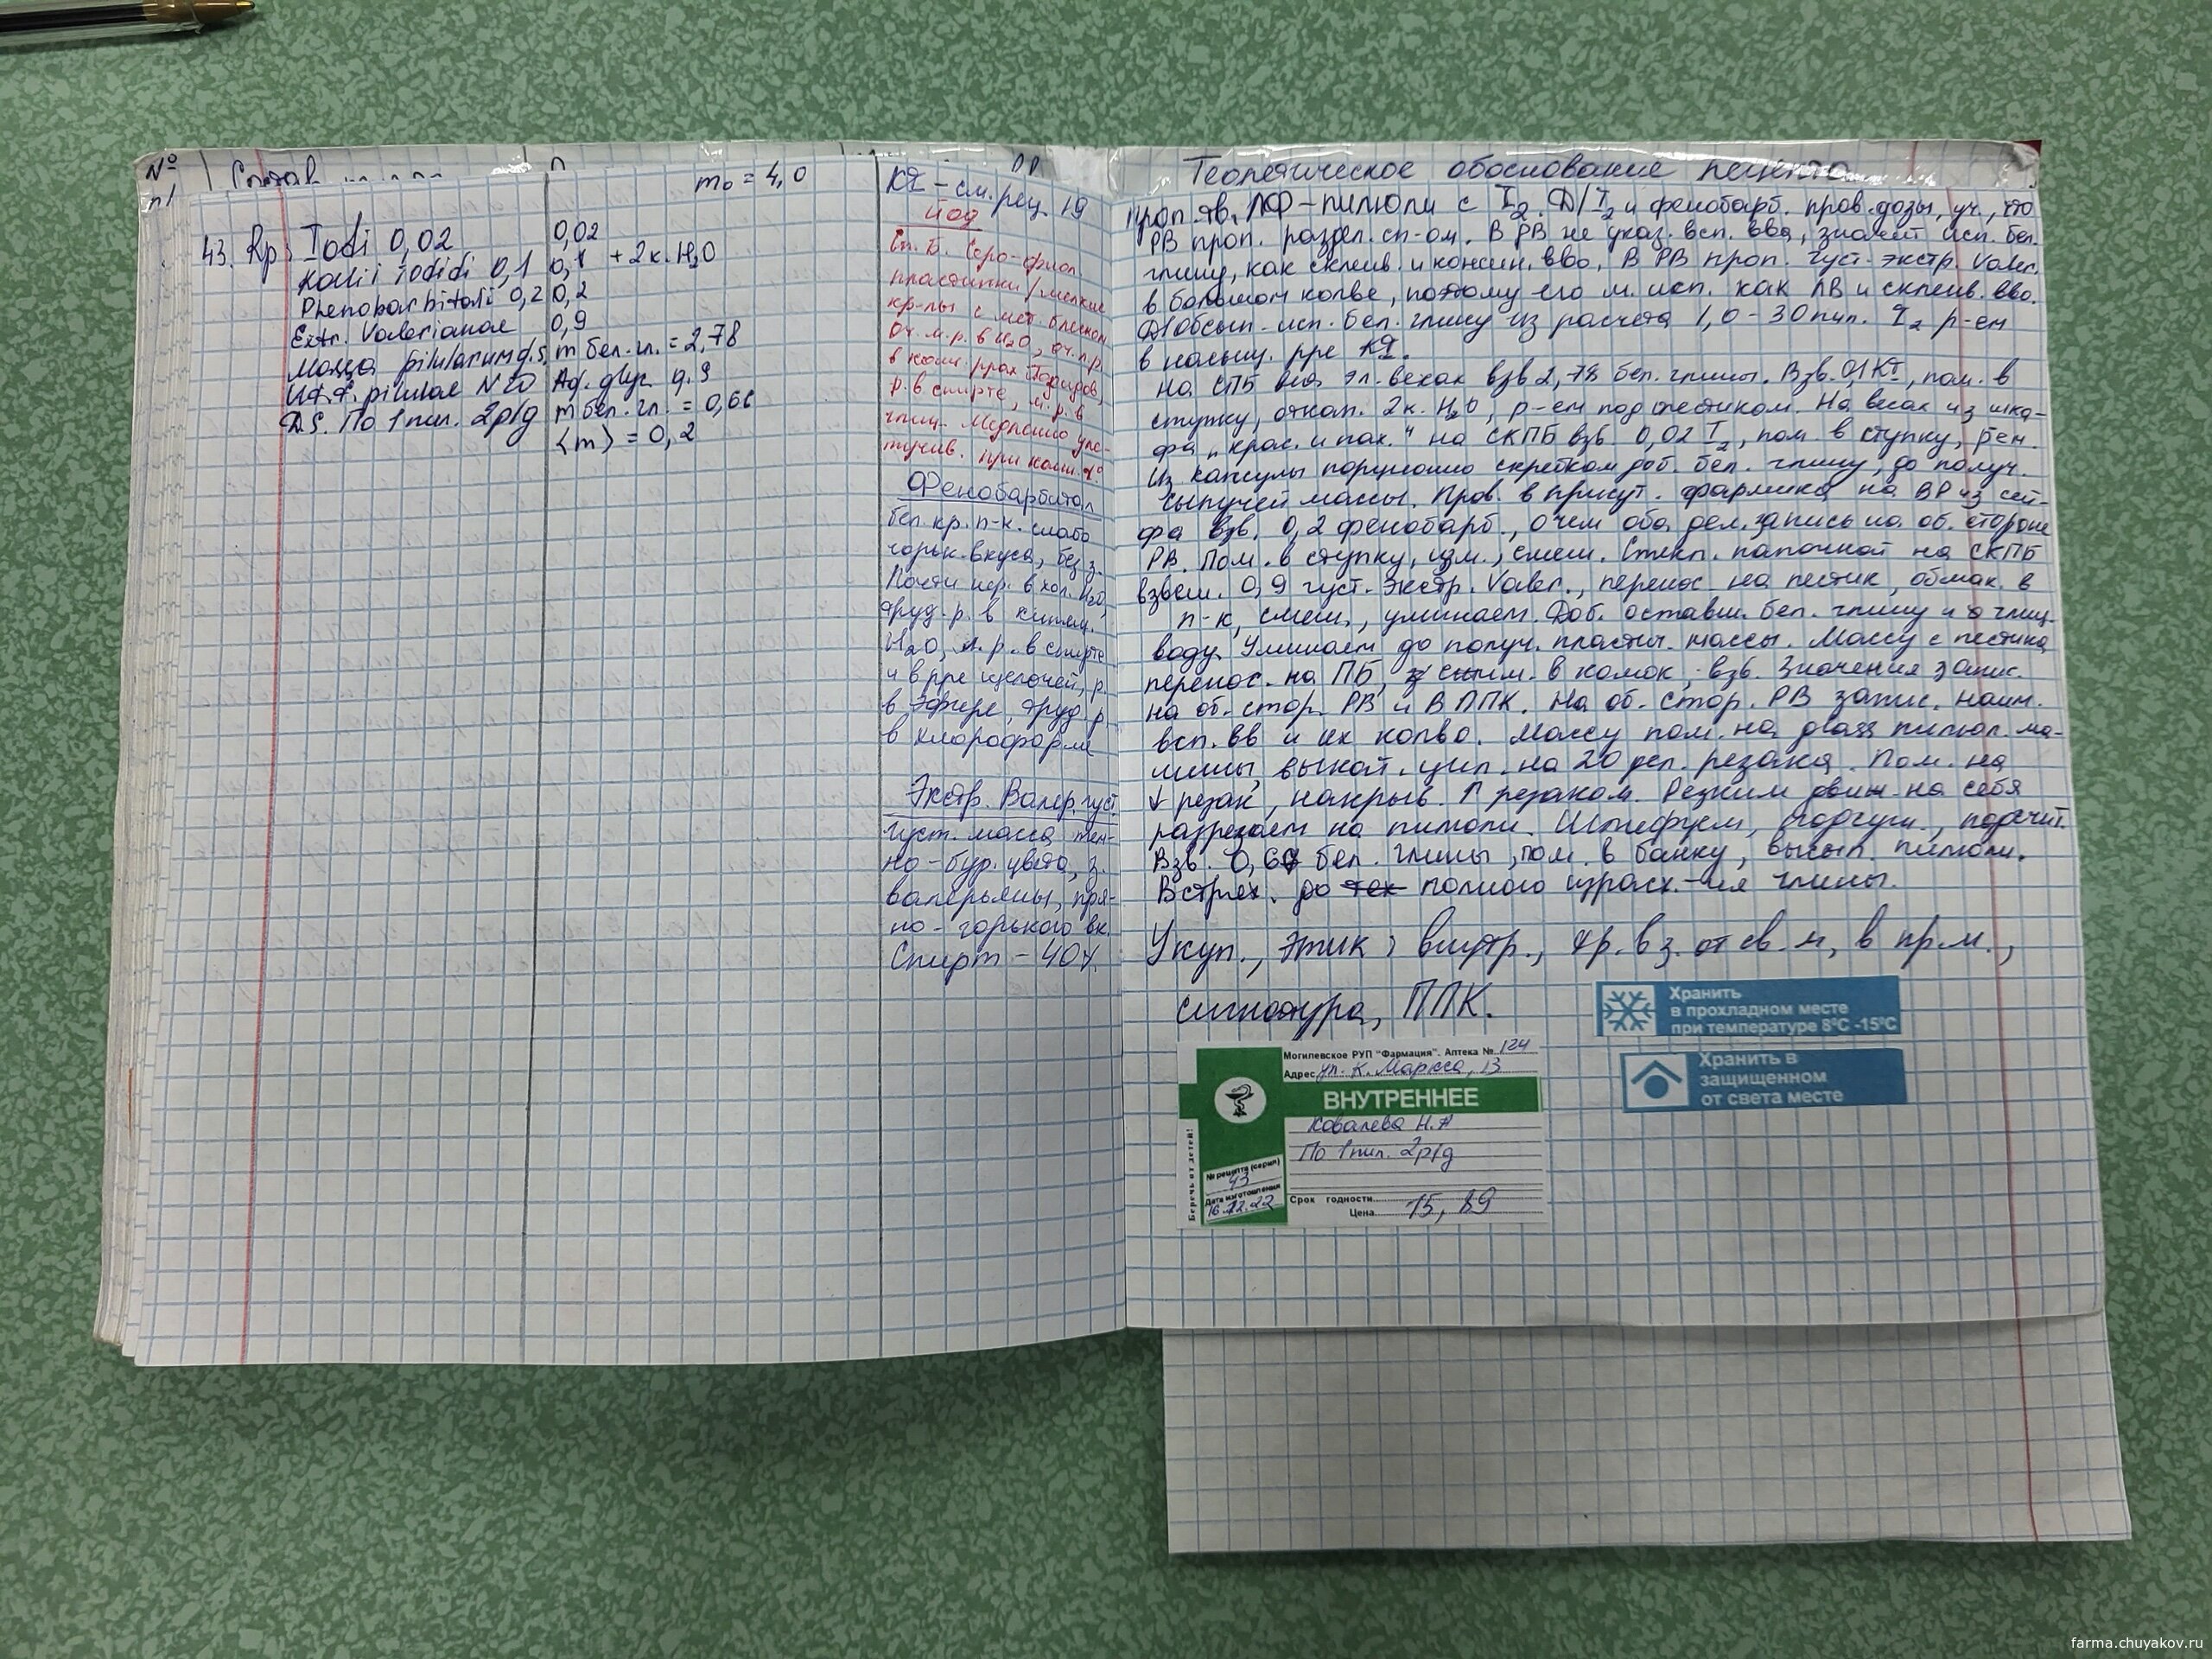 №
п/
m₀ = 4,0
43. Rp: Iodi 0,02 0,02
Kalii iodidi 0,1 0,1 + 2к. H₂O
Phenobarbitali 0,2 0,2
Extr. Valerianae 0,9
Massa pilularum q.s. m бел. гл. = 2,78
Ut f. pilulae N 20 Aq. glyc q.s
D.S. По 1 пил. 2р/д m бел. гл. = 0,66
⟨m⟩ = 0,2
KI – см. рец. 19
Йод
Сп. Б. Серо-фиол.
пластинки/мелкие
кр-лы с мет. блеском
Оч. м. р. в H₂O, оч. л. р.
в конц. ррах йодидов,
р. в спирте, м. р. в
глиц. Медленно уле-
тучив. при комн. t°
Фенобарбитал
бел. кр. п-к. слабо
горьк. вкуса, без з.
Почти нер. в хол. H₂O,
труд. р. в кипящ.
H₂O, л. р. в спирте
и в рре щелочей, р.
в эфире, труд. р.
в хлороформе
Экстр. Валер. густ.
густ. масса тем-
но-бур. цвета, з.
валерьяны, пря-
но-горького вк.
Спирт – 40%.
Теоретическое обоснование рецепта
Проп. тв. ЛФ – пилюли с I₂. Д/I₂ и фенобарб. пров. дозы, уч., что
РВ проп. раздел. сп-ом. В РВ не указ. всп. вва, значит исп. бел.
глину, как склеив. и консис. вво. В РВ проп. густ. экстр. Valer.
в большом колве, поэтому его м. исп. как ЛВ и склеив. вво.
Д/обсып. исп. бел. глину из расчета 1,0 – 30 пил. I₂ р-ем
в насыщ. рре KI.
На СПБ на эл. весах взв 2,78 бел. глины. Взв. 0,1 KI, пом. в
ступку, откап. 2к. H₂O, р-ем под пестиком. На весах из шка-
фа „крас. и пах." на СКПБ взв. 0,02 I₂, пом. в ступку, р-ем.
Из капсулы порционно скребком доб. бел. глину, до получ.
сыпучей массы. Пров. в присут. фармика на ВР из сей-
фа взв. 0,2 фенобарб., о чем оба дел. запись на об. стороне
РВ. Пом. в ступку, изм., смеш. Стекл. палочкой на СКПБ
взвеш. 0,9 густ. экстр. Valer., перенос. на пестик, обмак. в
п-к, смеш., уминаем. Доб. оставш. бел. глину и глиц.
воду. Уминаем до получ. пластич. массы. Массу с пестика
перенос. на ПБ, сжим. в комок, взв. Значения запис.
на об. стор. РВ и В ППК. На об. стор. РВ запис. наим.
всп. вв и их колво. Массу пом. на glass пилюл. ма-
шины, выкат. цил. на 20 дел. резака. Пом. на
↓ резак, накрыв. ↑ резаком. Резким движ. на себя
разрезаем на пилюли. Шлифуем, подсуш., подсчит.
Взв. 0,66 бел. глины, пом. в банку, высып. пилюли.
Встрях. до тех полного израсх.-ия глины.
Укуп., этик: внутр., хр. в з. от св. м, в пр. м.,
сигнатура, ППК.
Хранить
в прохладном месте
при температуре 8°С -15°С
Хранить в
защищенном
от света месте
Могилевское РУП "Фармация". Аптека № 124
Адрес ул. К. Маркса, 13
ВНУТРЕННЕЕ
Ковалева Н.А
По 1 пил. 2р/д
Беречь от детей!
№ рецепта (серия)
43
Дата изготовления
16.12.22
Срок годности
Цена 15,89
farma.chuyakov.ru